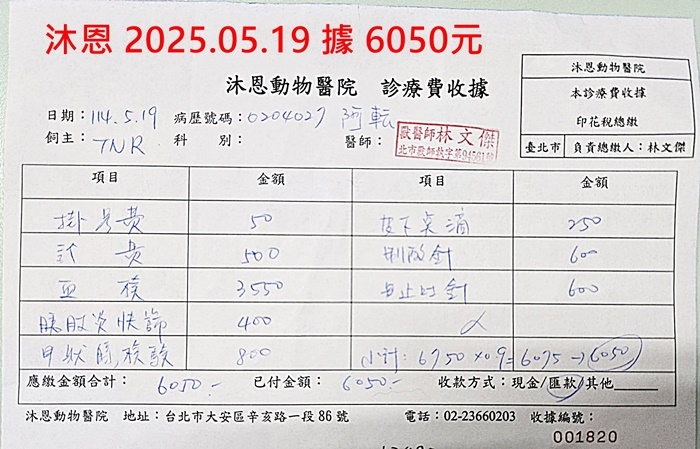 沐恩 2025.05.19 據 6050元
沐恩動物醫院 診療費收據
沐恩動物醫院
本診療費收據
印花稅總繳
臺北市 負責總繳人：林文傑
日期：114.5.19 病歷號碼：0204027 阿転
飼主：TNR 科 別： 醫師：
獸醫師林文傑
項目 金額 項目 金額
掛号費 50 皮下点滴 250
診費 500 600
血檢 3550 止吐針 600
胰臟炎快篩 400
甲狀腺檢驗 800 小計：6750×0.9=6075→6050
應繳金額合計：6050.- 已付金額：6050.- 收款方式：現金/匯款/其他
沐恩動物醫院 地址：台北市大安區辛亥路一段86號 電話：02-23660203 收據編號：
001820